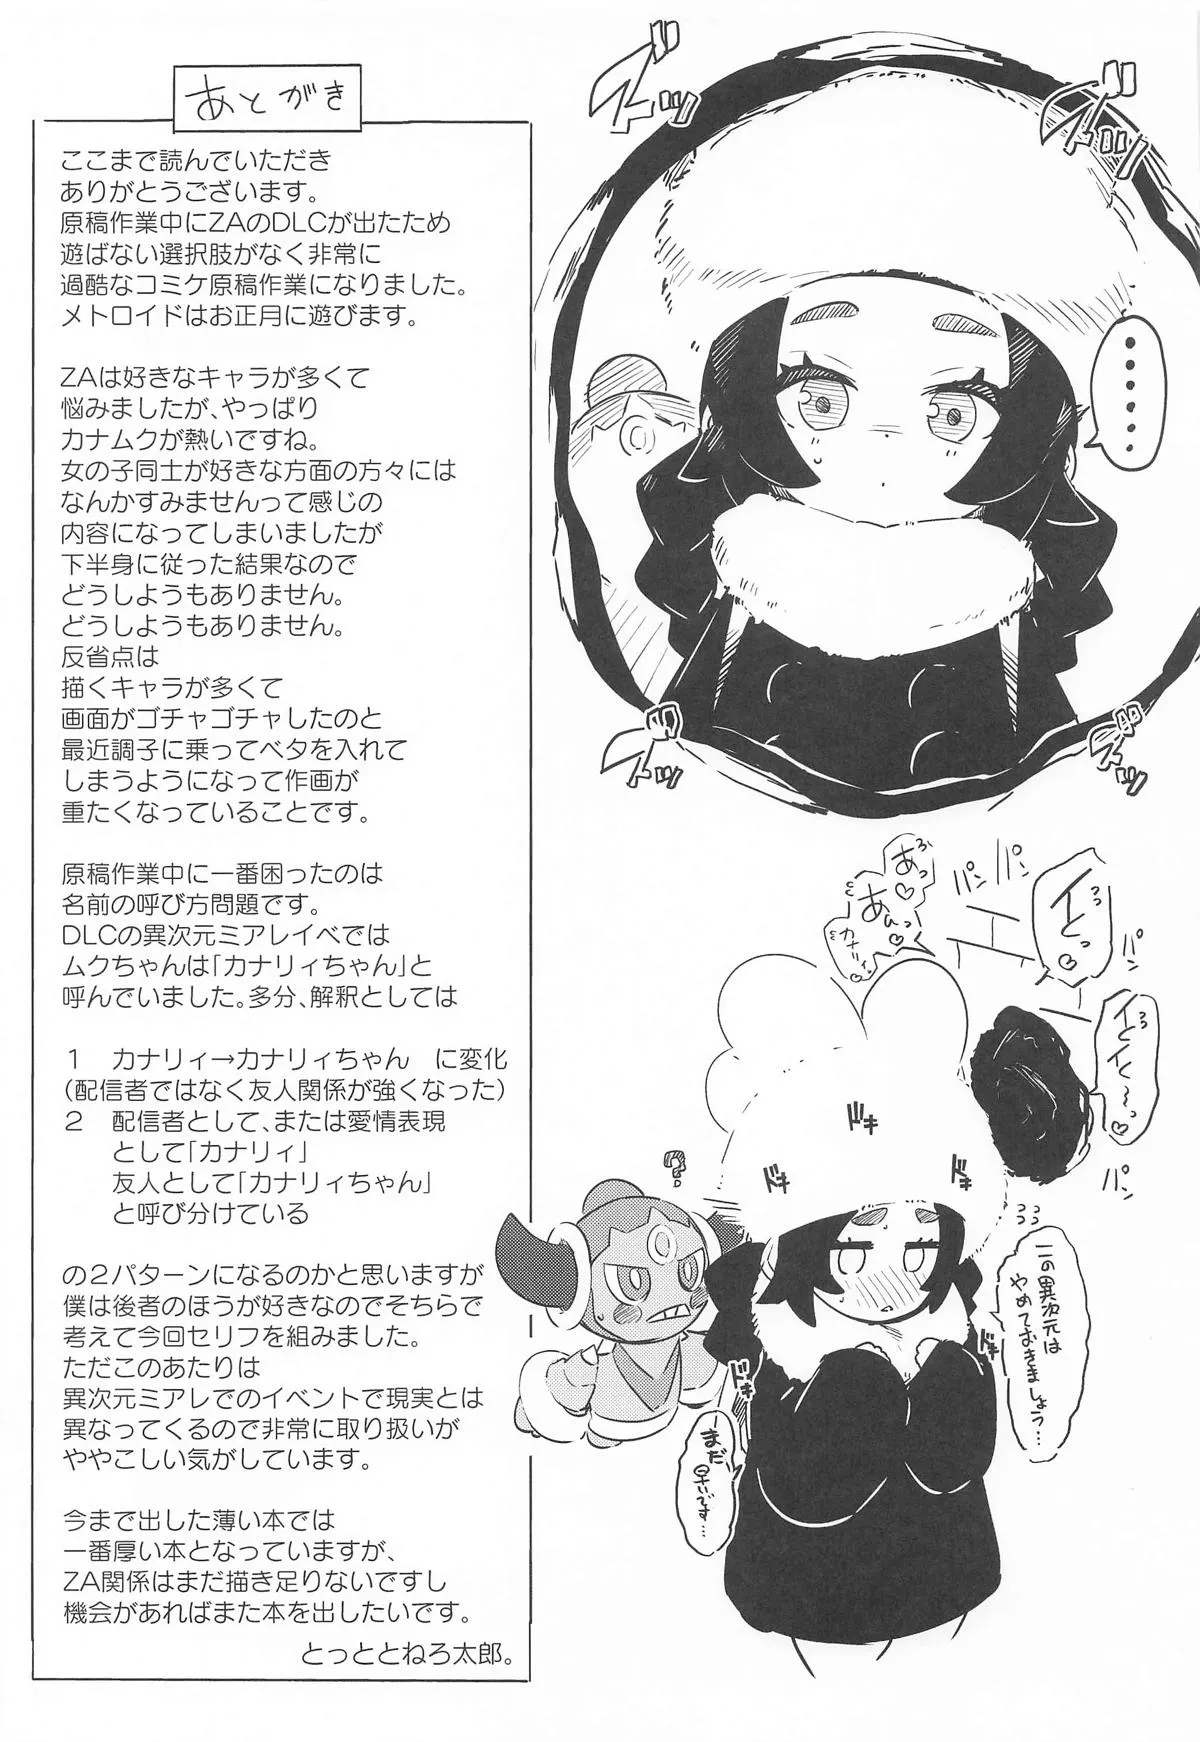 あとがき
ここまで読んでいただき
ありがとうございます。
原稿作業中にZAのDLCが出たため
遊ばない選択肢がなく非常に
過酷なコミケ原稿作業になりました。
メトロイドはお正月に遊びます。
ZAは好きなキャラが多くて
悩みましたが、やっぱり
カナムクが熱いですね。
女の子同士が好きな方面の方々には
なんかすみませんって感じの
内容になってしまいましたが
下半身に従った結果なので
どうしようもありません。
どうしようもありません。
反省点は
描くキャラが多くて
画面がゴチャゴチャしたのと
最近調子に乗ってベタを入れて
しまうようになって作画が
重たくなっていることです。
原稿作業中に一番困ったのは
名前の呼び方問題です。
DLCの異次元ミアレイベでは
ムクちゃんは「カナリィちゃん」と
呼んでいました。多分、解釈としては
1　カナリィ→カナリィちゃん　に変化
(配信者ではなく友人関係が強くなった)
2　配信者として、または愛情表現
として「カナリィ」
友人として「カナリィちゃん」
と呼び分けている
の2パターンになるのかと思いますが
僕は後者のほうが好きなのでそちらで
考えて今回セリフを組みました。
ただこのあたりは
異次元ミアレでのイベントで現実とは
異なってくるので非常に取り扱いが
ややこしい気がしています。
今まで出した薄い本では
一番厚い本となっていますが、
ZA関係はまだ描き足りないですし
機会があればまた本を出したいです。
とっととねろ太郎。